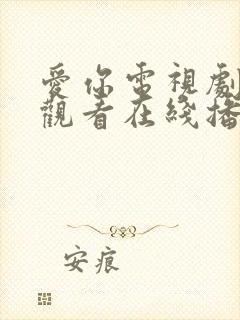 愛你電視劇
觀看在綫播
安痕